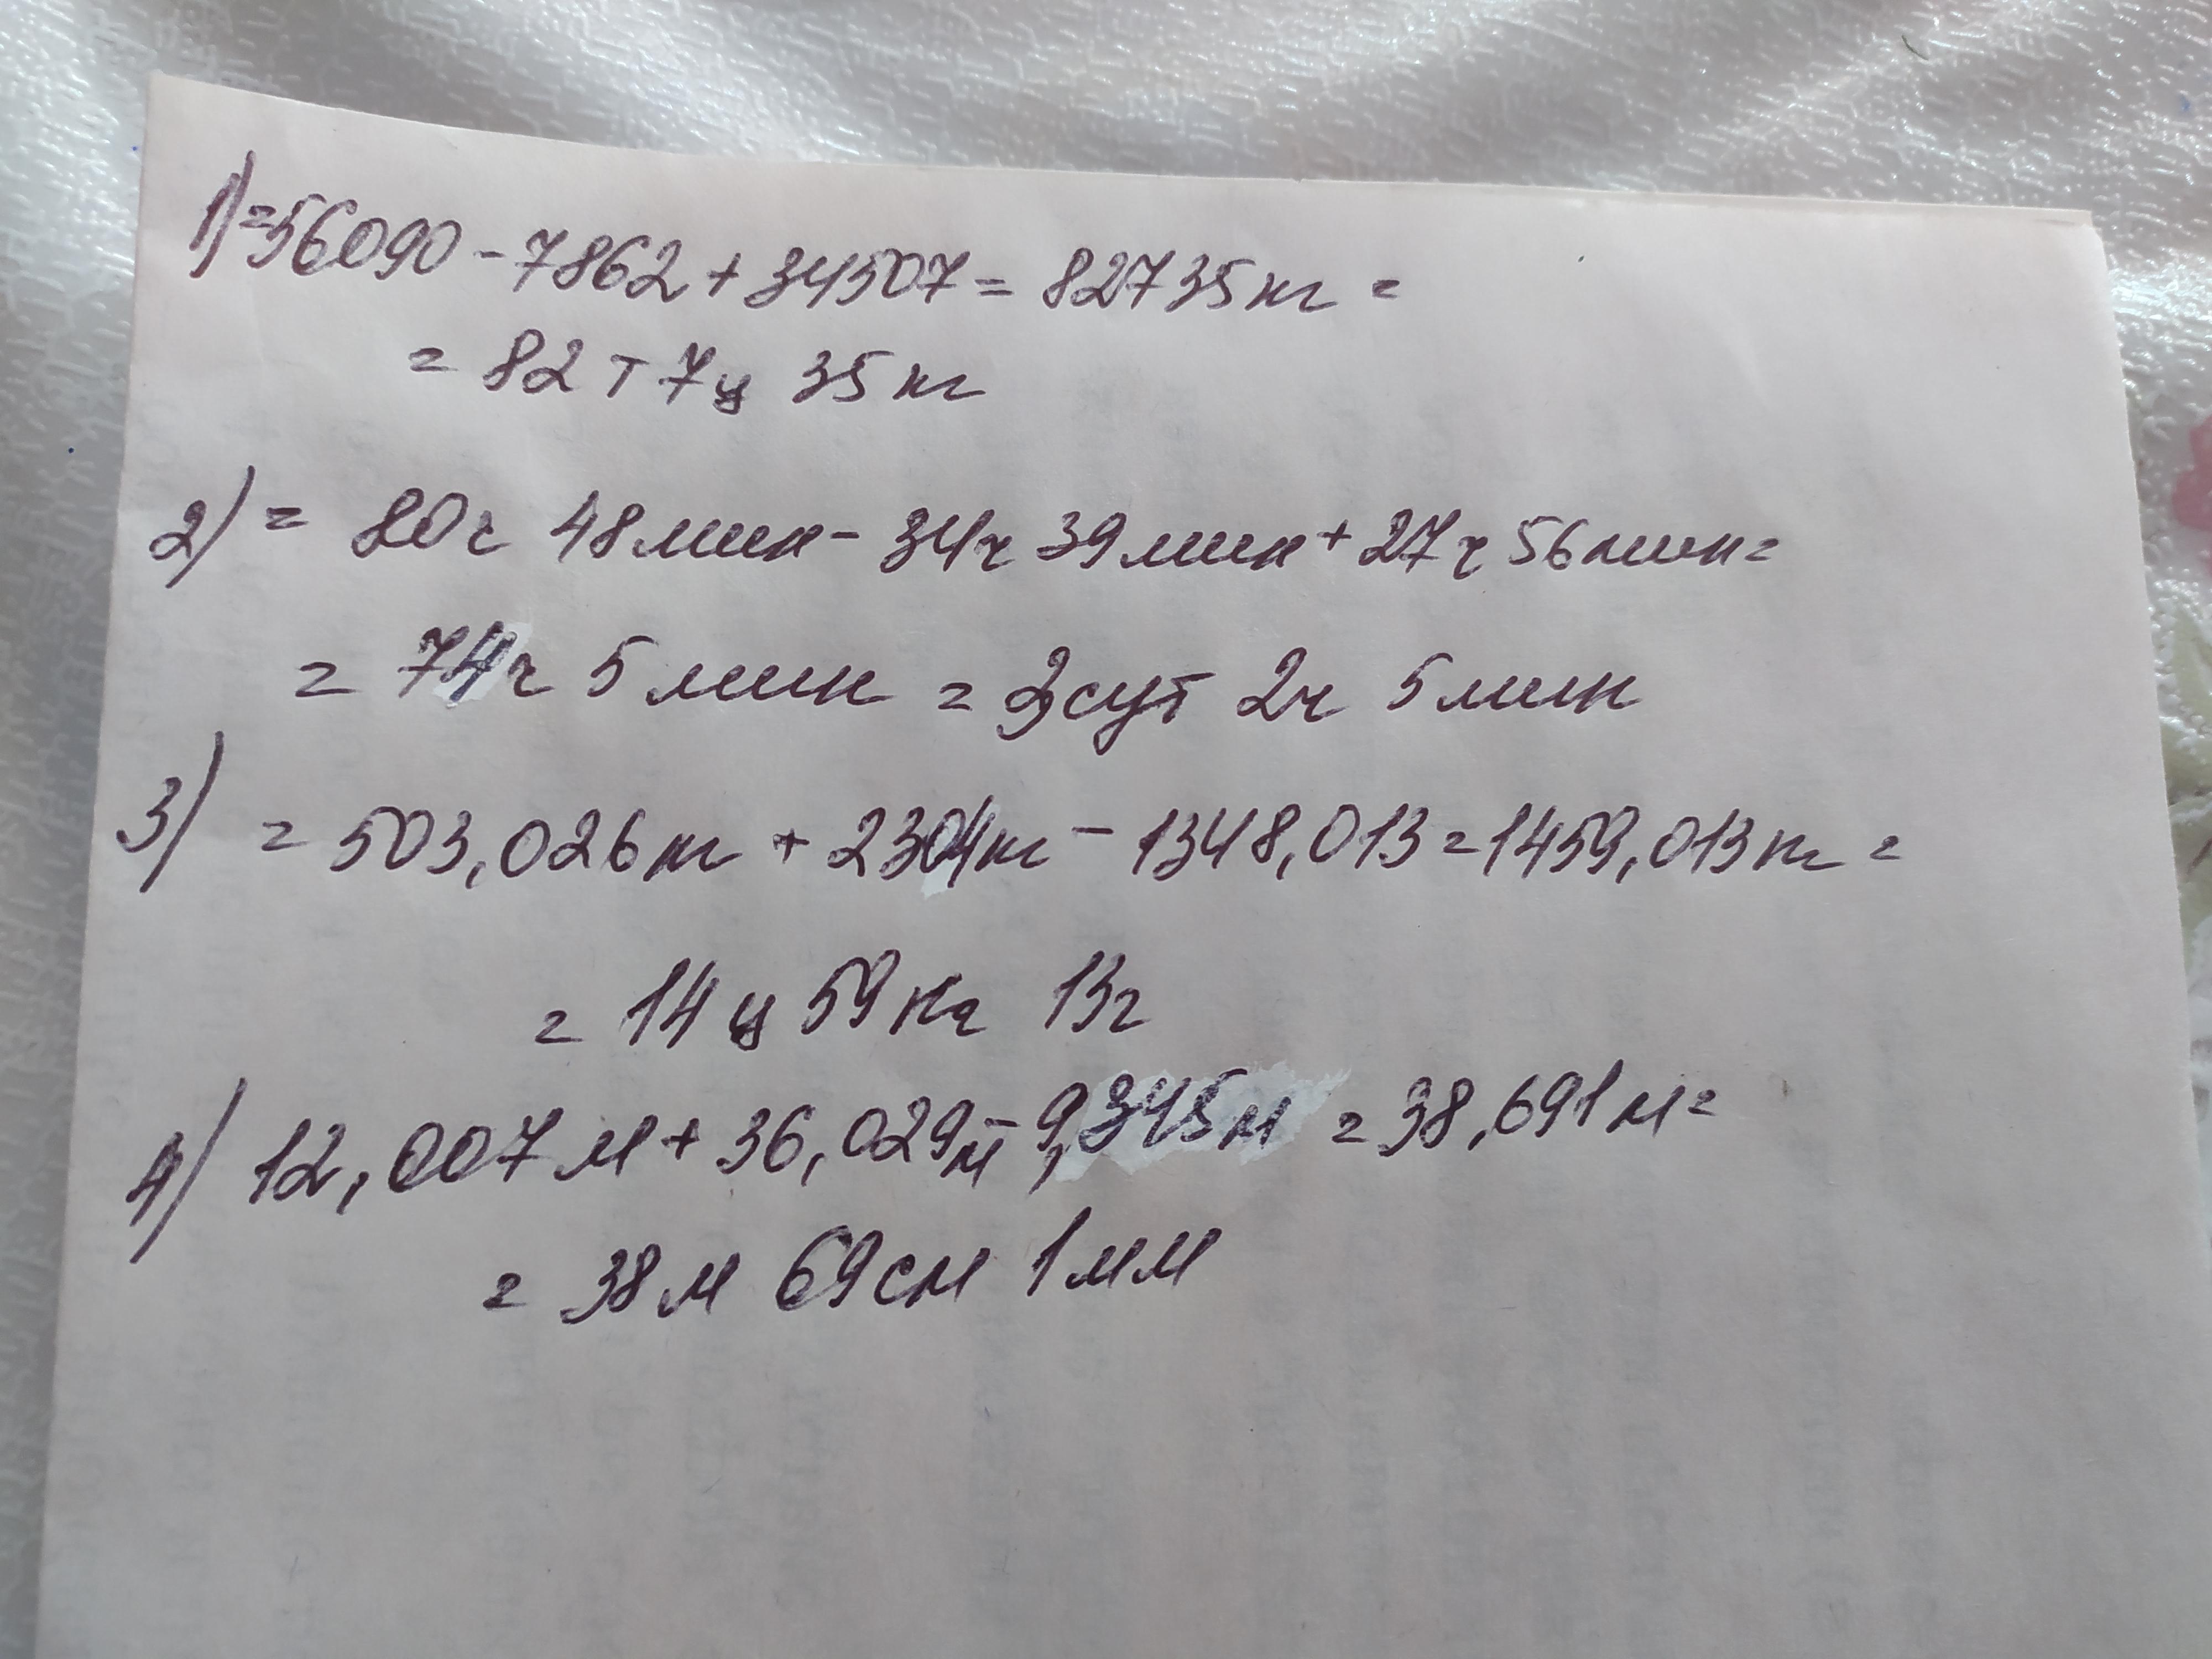 1) =56090 - 7862 + 34507 = 82735 кг =
= 82 т 7 ц 35 кг
2) = 80 ч 48 мин - 34 ч 39 мин + 27 ч 56 мин =
= 74 ч 5 мин = 3 сут 2 ч 5 мин
3) = 503,026 кг + 2304 кг - 1348,013 = 1459,013 кг =
= 14 ц 59 кг 13 г
4) 12,007 м + 36,029 м - 9,345 м = 38,691 м =
= 38 м 69 см 1 мм